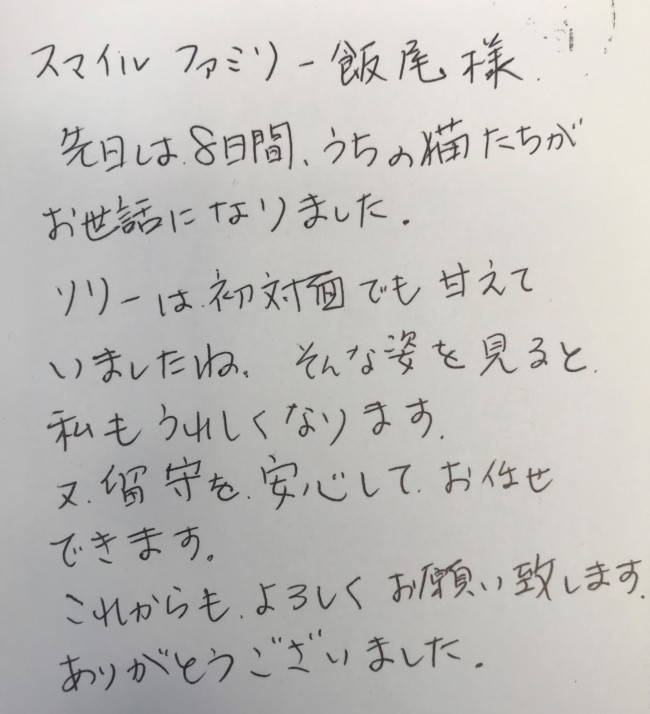 スマイルファミリー飯尾様.
先日は、8日間、うちの猫たちが
お世話になりました.
ソリーは、初対面でも甘えて
いましたね。そんな姿を見ると、
私もうれしくなります.
又、留守を、安心して、お任せ
できます。
これからも、よろしくお願い致します.
ありがとうございました.